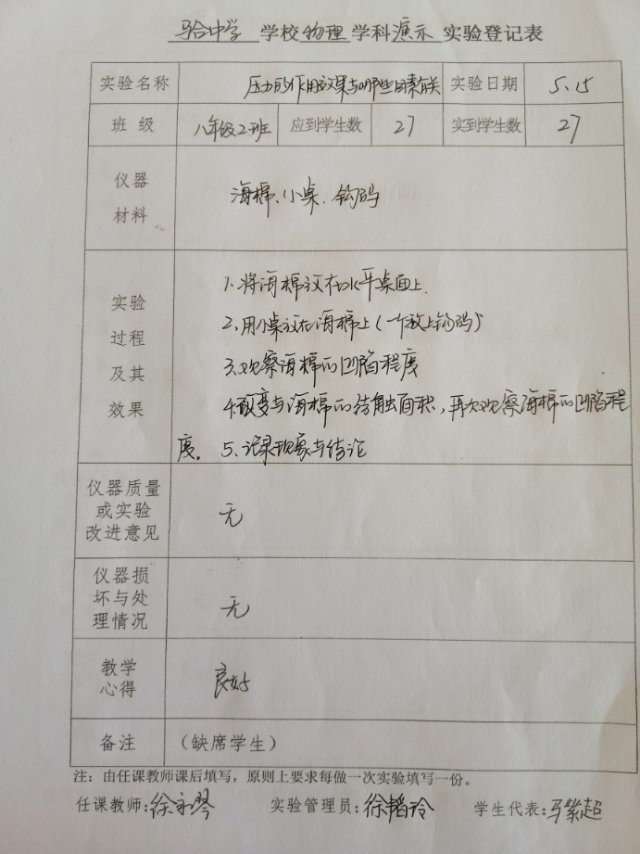 马合中学 学校 物理 学科 演示 实验登记表
实验名称 压力的作用效果与哪些因素有关 实验日期 5.15
班 级 八年级2班 应到学生数 27 实到学生数 27
仪器
材料
海棉、小桌、钩码
实验
过程
及其
效果
1.将海棉放在水平桌面上.
2.用小桌放在海棉上(一个放上钩码)
3.观察海棉的凹陷程度
4.改变与海棉的接触面积,再次观察海棉的凹陷程
度。 5.记录现象与结论
仪器质量
或实验
改进意见
无
仪器损
坏与处
理情况
无
教学
心得
良好
备注 (缺席学生)
注:由任课教师课后填写,原则上要求每做一次实验填写一份。
任课教师:徐永琴 实验管理员:徐韬玲 学生代表:马紫超